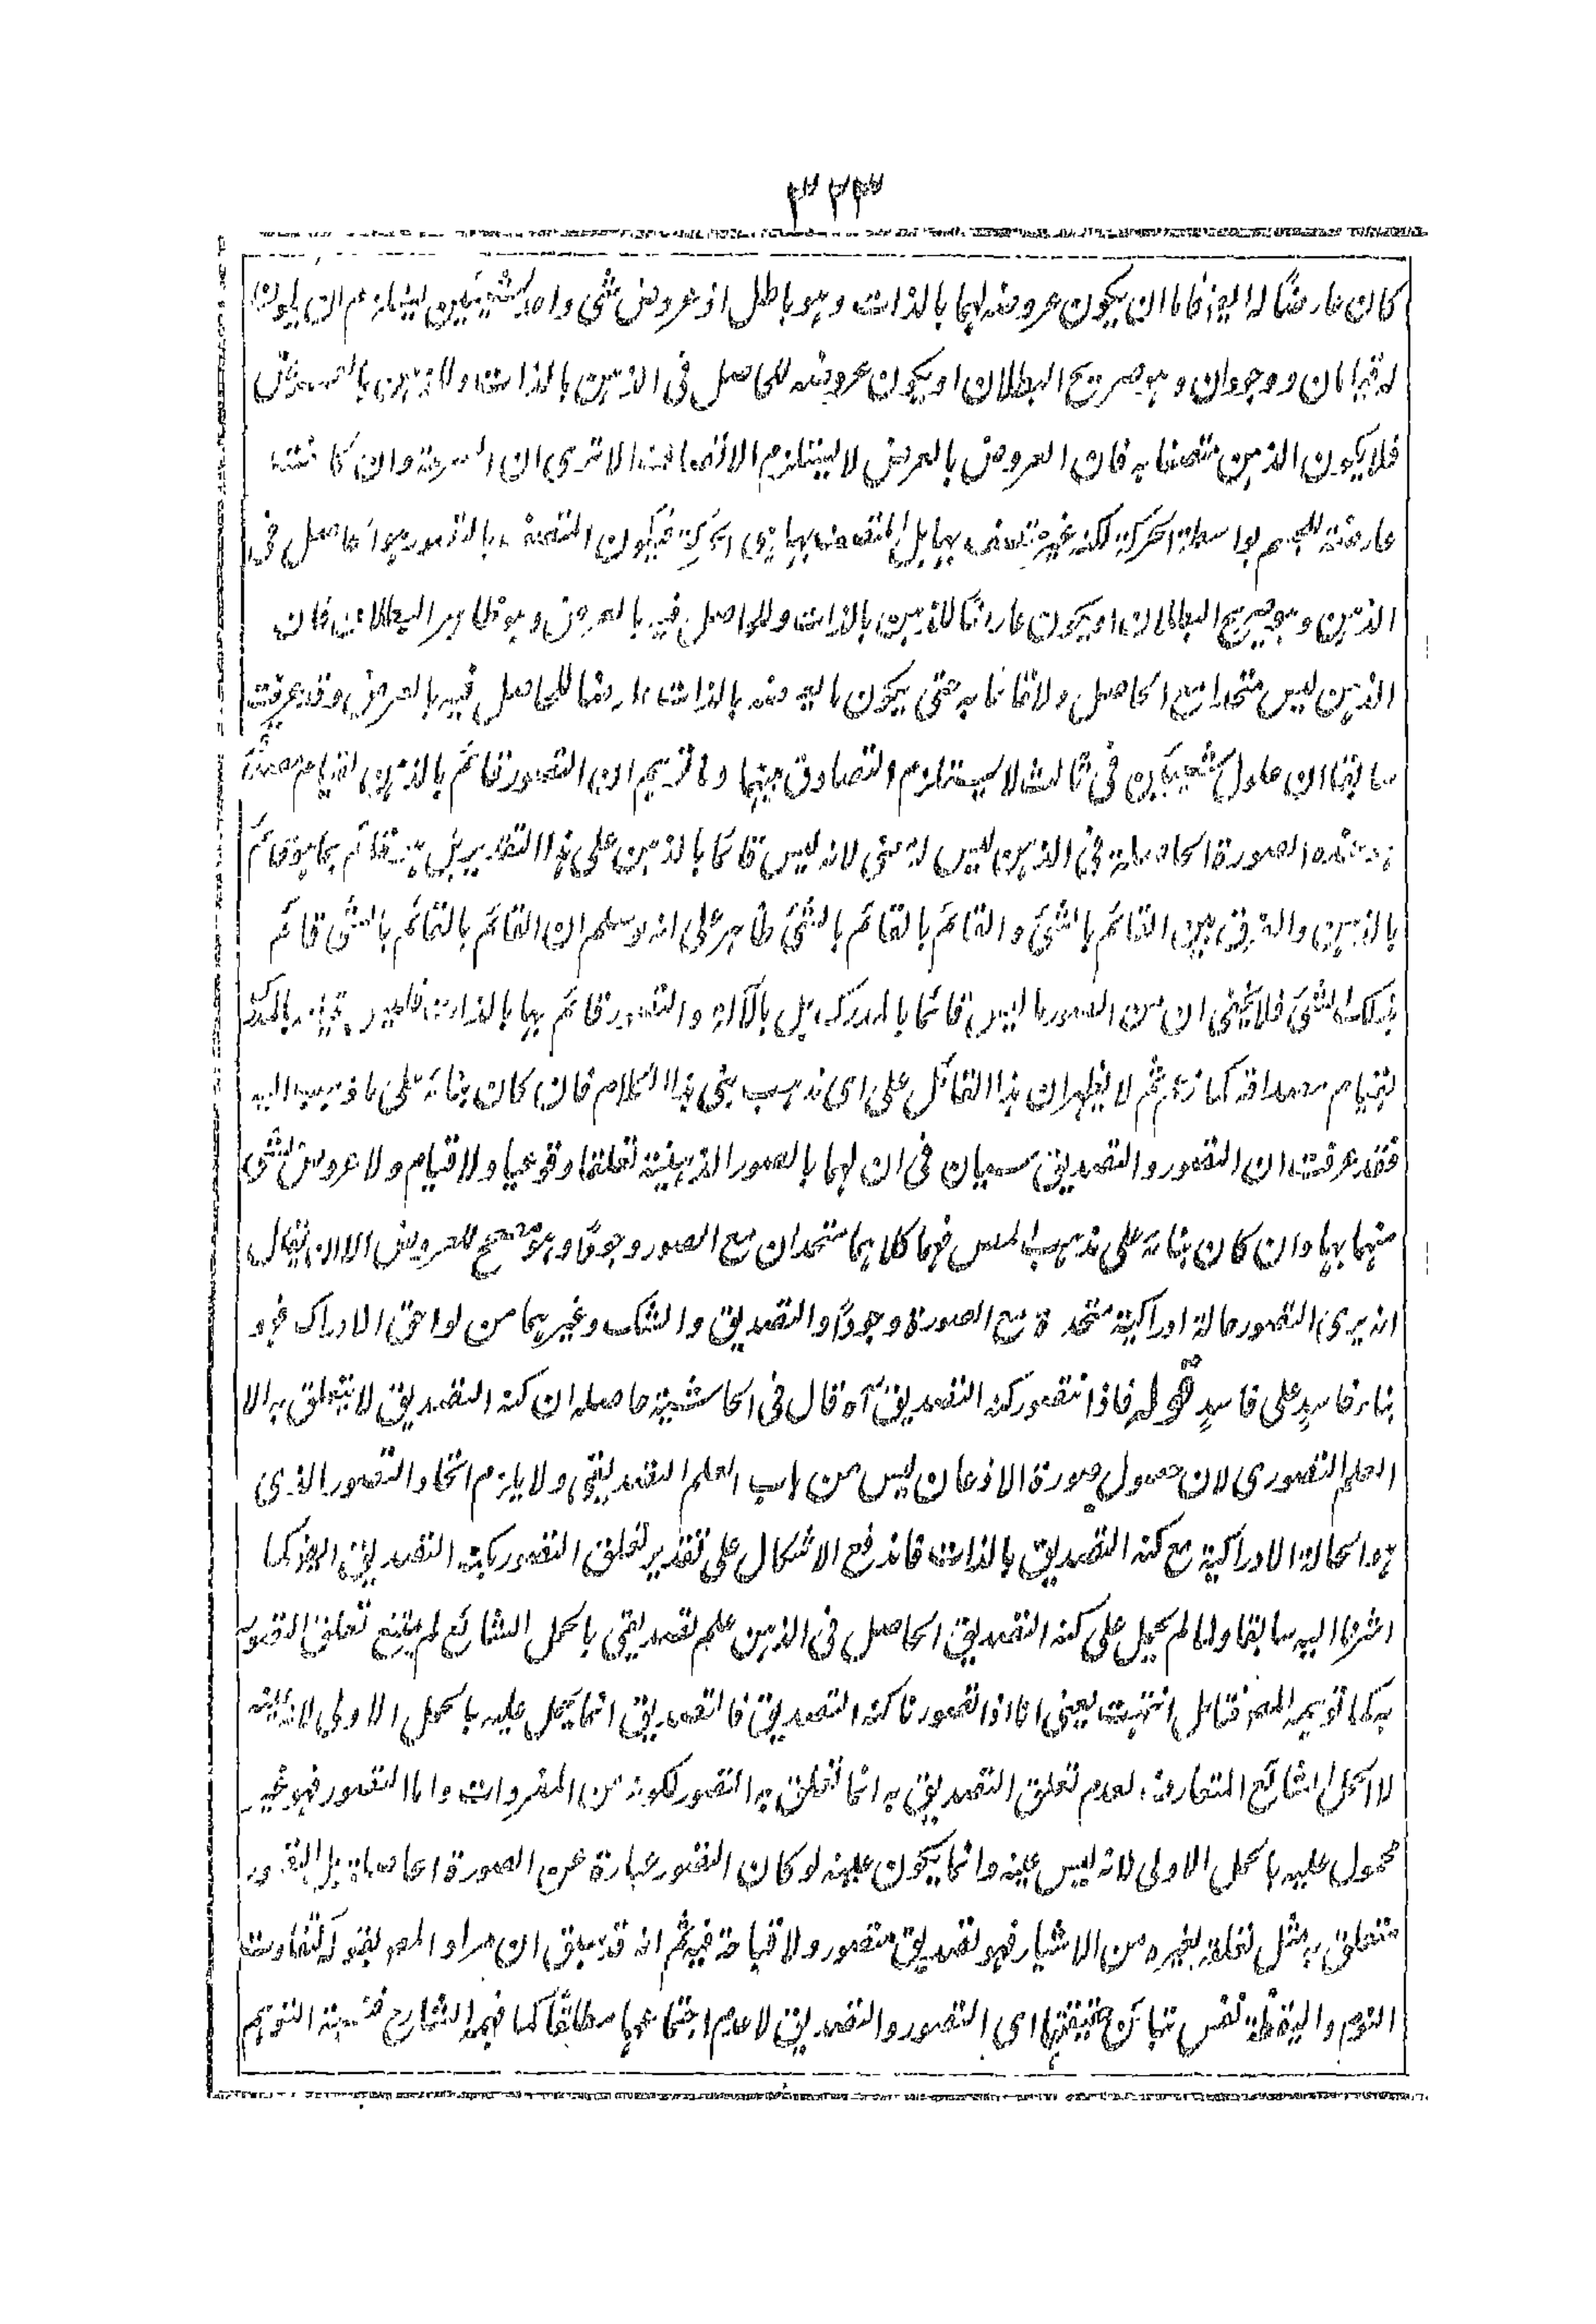 ٣٢٣
كان عارضًا له ايضا فاما ان يكون عروضه لهما بالذات وهو باطل اذ عروض شئ واحد لشيئين يستلزم ان يكون
له قيامان ووجودان وهو صريح البطلان او يكون عروضه للحاصل فى الذهن بالذات وللذهن بالعرض
فلا يكون الذهن متصفا به فان العروض بالعرض لا يستلزم الاتصاف الا ترى ان السرعة وان كانت
عارضة للجسم بواسطة الحركة لكنه غير متصف بها بل المتصف بها هى الحركة فيكون المتصف بالتصور هو الحاصل فى
الذهن وهو صريح البطلان او يكون عارضًا للذهن بالذات وللحاصل فيه بالعرض وهو ظاهر البطلان فان
الذهن ليس متحدا مع الحاصل ولا قائما به حتى يكون ما يعرضه بالذات عارضا للحاصل فيه بالعرض وقد عرفت
سابقا ان حلول شيئين فى ثالث لا يستلزم التصادق بينهما وما توهم ان التصور قائم بالذهن لقيام
الصورة الحاصلة فى الذهن ليس له معنى لانه ليس قائما بالذهن على هذا التقدير بل هو قائم بما هو قائم
بالذهن والفرق بين القائم بالشئ والقائم بالقائم بالشئ ظاهر على انه لو سلم ان القائم بالقائم بالشئ قائم
بذلك الشئ فلا يخفى ان من الصور ما ليس قائما بالمدرك بل بالآلة والتصور قائم بها بالذات قيامه بالمدرك
لقيام مصداقه كما زعم ثم لا يظهر ان هذا القائل على اى مذهب بنى هذا الكلام فان كان بناؤه على ما ذهب اليه
فقد عرفت ان التصور والتصديق سيان فى ان لهما بالصور الذهنية تعلقا وقوعيا ولا قيام ولا عروض لشئ
منهما بها وان كان بناؤه على مذهب المص فهما كلاهما متحدان مع الصور وجودًا وهو مصحح للعروض الا ان يقال
انه يرى التصور حالة ادراكية متحدة مع الصورة وجودًا والتصديق والشك وغيرهما من لواحق الادراك فهو
بناء فاسدٍ على فاسدٍ قوله فاذا تصور كنه التصديق آه قال فى الحاشية حاصله ان كنه التصديق لا يتعلق به الا
العلم التصورى لان حصول صورة الاذعان ليس من باب العلم التصديقى ولا يلزم اتحاد التصور الذى
هو الحالة الادراكية مع كنه التصديق بالذات فاندفع الاشكال على تقدير تعلق التصور بكنه التصديق ايضا كما
اشرنا اليه سابقا ولما لم يحمل على كنه التصديق الحاصل فى الذهن علم تصديقى بالحمل الشائع لم يمتنع تعلق التصور
به كما توهمه المص فتامل انتهت يعنى انا اذا تصورنا كنه التصديق فالتصديق انما يحمل عليه بالحمل الاولى لانه عينه
لا الحمل الشائع المتعارف لعدم تعلق التصديق به انما تعلق به التصور لكونه من المفردات واما التصور فهو غير
محمول عليه بالحمل الاولى لانه ليس عينه وانما يكون عينه لو كان التصور عبارة عن الصورة الحاصلة بل التصور
متعلق به مثل تعلقه بغيره من الاشياء فهو تصديق متصور ولا قباحة فيه ثم انه قد سبق ان مراد المص بقوله كتفاوت
النوم واليقظة نفس تباين حقيقتهما اى التصور والتصديق لا عدم اجتماعهما مطلقًا كما فهمه الشارح التوهم